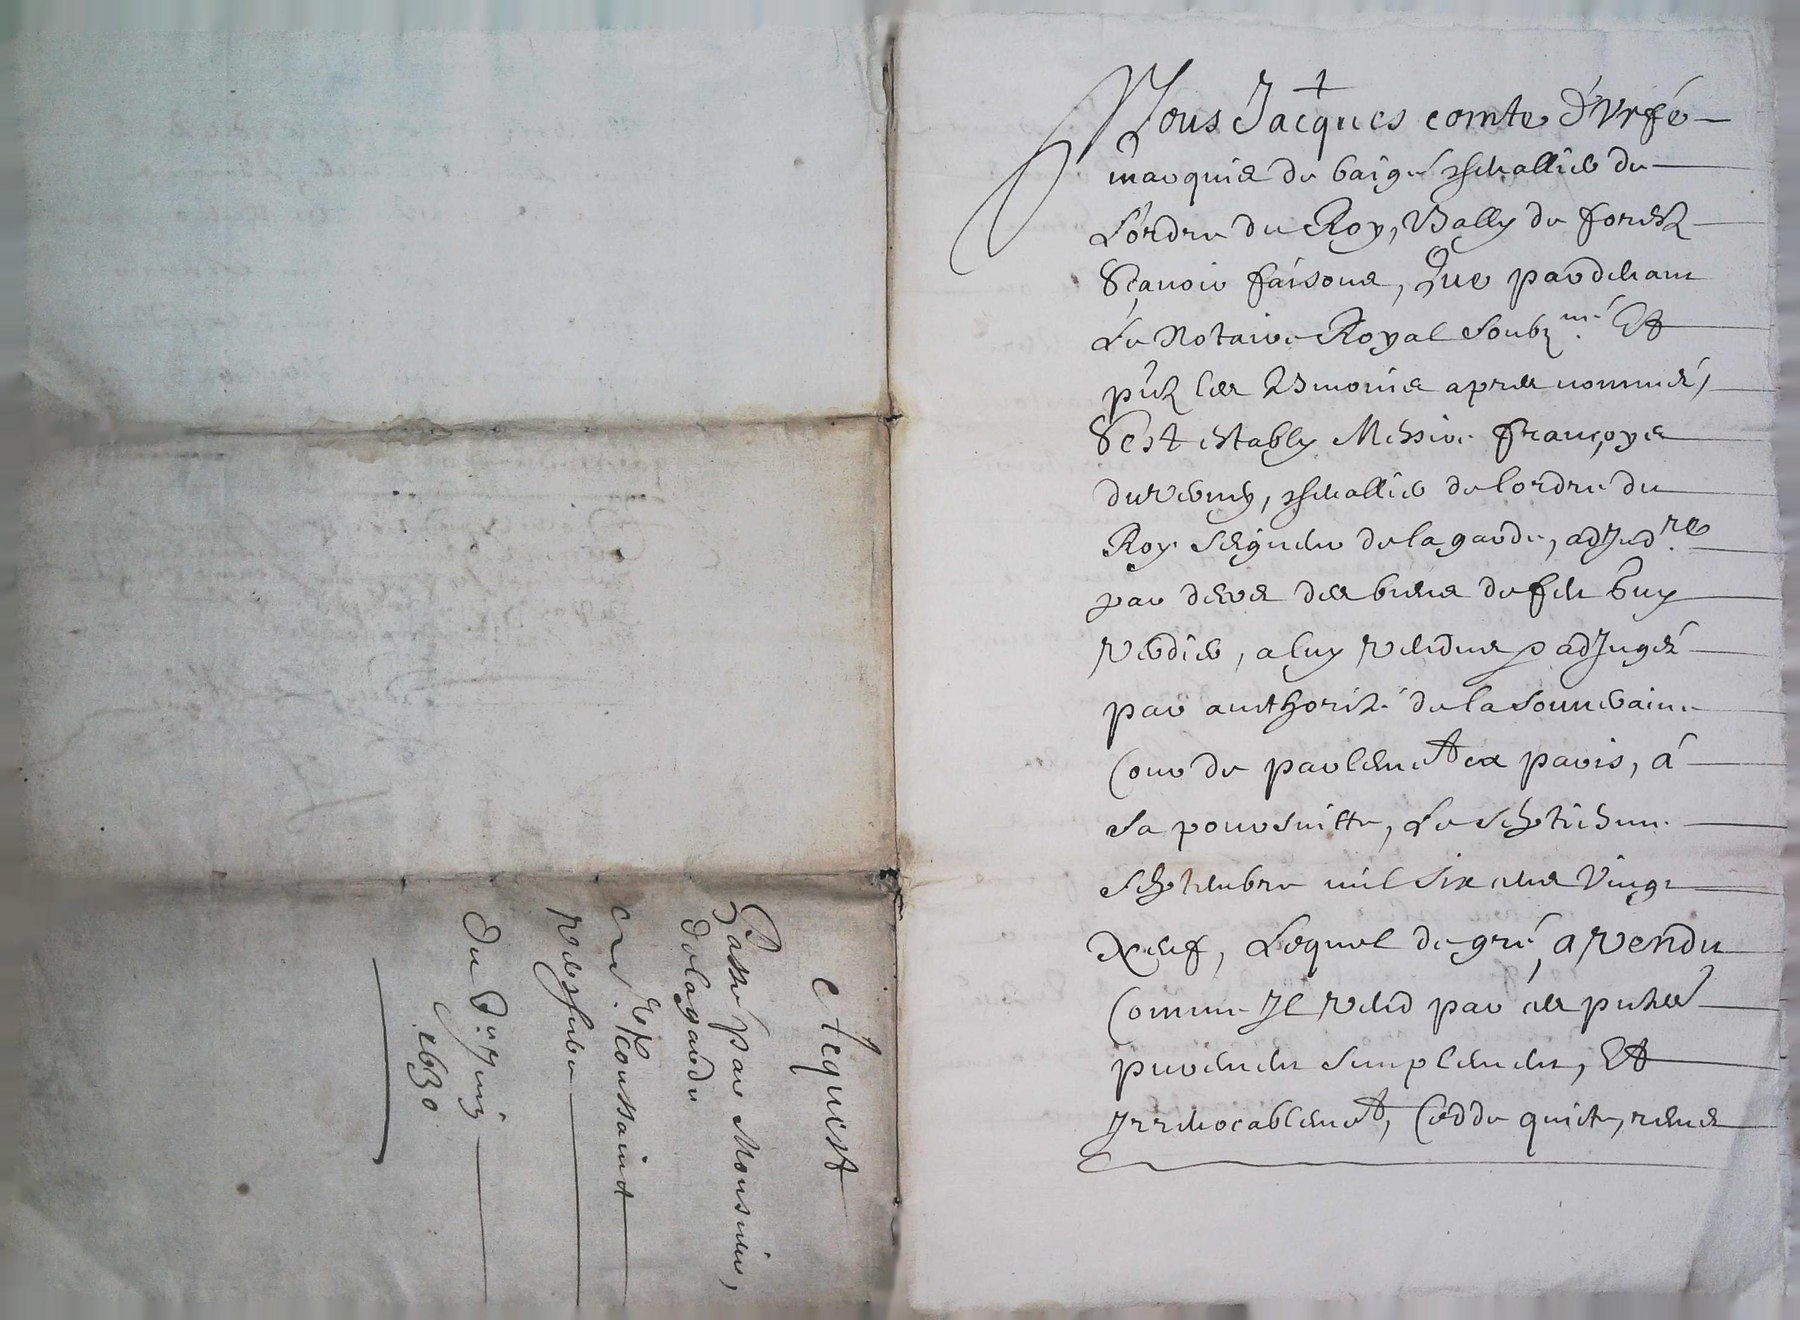 Nous Jacques comte d'Urfé
marquis de baigé chevallier de
L'ordre du Roy, Bally de forestz
Sçavoir faisons, Que pardevant
Le Notaire Royal soubzné Et
pntz les tesmoins apres nommés,
S'est estably Messire françoys
du verney, chevallier de l'ordre du
Roy Seigneur de la garde, adjudre
par decret des biens de feu Guy
verdier, a luy vendus & adjugés
par authorité de la souveraine
Cour de parlement a paris, á
sa poursuitte, Le septiesme
septembre mil six cens vingt
neuf, Lequel de gré, a vendu
Comme Il vend par ces pntes
purement simplement, Et
Irrevocablement, Cedde quicte, remet
Acquest
Passé par Monsieur,
de la garde
Toussainct
du Juin
1630